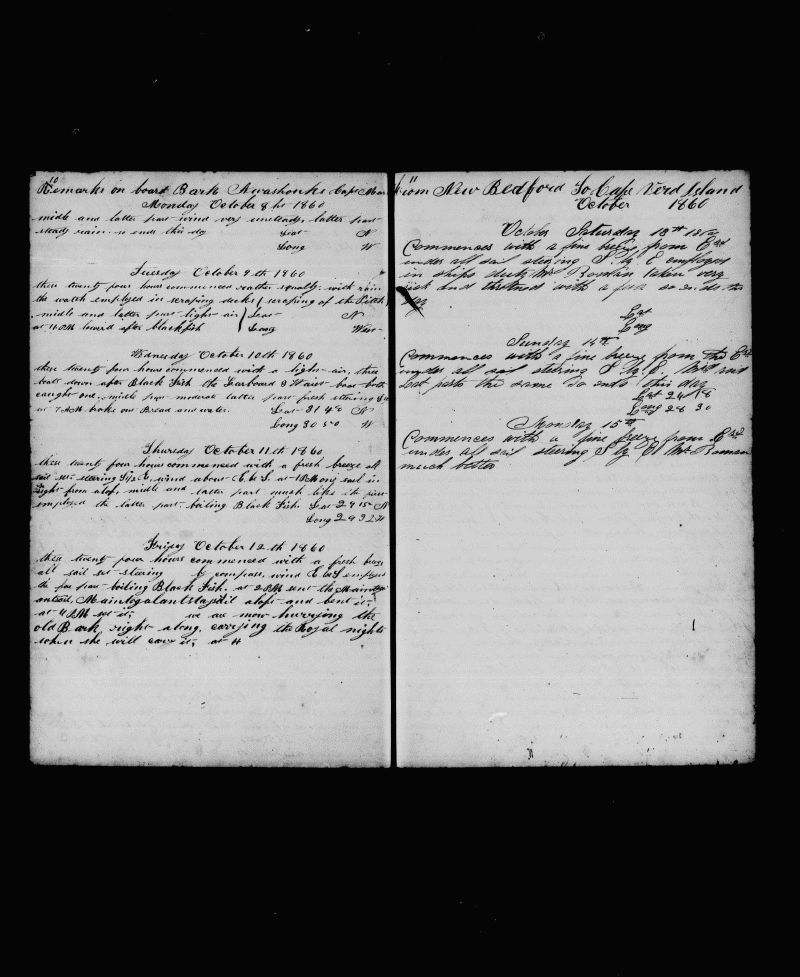 10
Remarks on board Bark Awashonks Capt
Monday October 8th 1860
midle and latter part wind very unsteady, latter part
steady rain. so ends this day Lat N
Long W
Tuesday October 9th 1860
these twenty four hours commenced rather squally with rain
the watch employed in scraping decks (scraping of the Pitch
midle and latter part light air Lat N
at 11 AM lowerd after blackfish Long West
Wdnesday October 10th 1860
these twenty four hours commenced with a light air, three
boats down after Black Fish the Larboard & Waist boat both
caught one. midle part moderate latter part fresh steering
at 7 AM broke out Bread and water. Lat 31 40 N
Long 30 50 W
Thursday October 11th 1860
these twenty four hours commenced with a fresh breeze all
sail set steering S½E, wind about E b S. at 10 AM sail in
sight from aloft, midle and latter part much like the first
employed the latter part boiling Black Fish Lat 29 15 N
Long 29 32 W
Friday October 12th 1860
these twenty four hours commenced with a fresh breeze
all sail set steering by compass, wind E b S employed
the fore part boiling Black Fish, at 2 PM sent the
aloft and bent it,
at 4 PM set it, we are now hurrying the
old Bark right along, carrying the Royal nights
when she will carry it, at 4
11
From New Bedford To Cape Verd Island
October 1860
October Saturday 13th 1860
Commences with a fine breeze from East
under all sail steering S by E employed
in ships duty Mr Bowman taken very
sick and so ends the
day
Lat
Long
Sunday 14th
Commences with a fine breeze from the East
under all sail steering S by E. Mid and
last parts the same So ends this day
Lat 24 18
Long 28 30
Monday 15th
Commences with a fine breeze from East
under all sail steering S by E Mr Bowman
much better